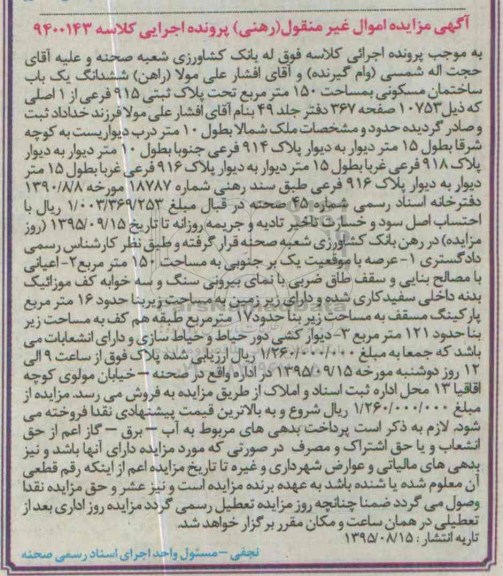 آگهی مزایده اموال غیر منقول(رهنی) پرونده اجرایی کلاسه ۹۴۰۰۱۴۳
به موجب پرونده اجرائی کلاسه فوق له بانک کشاورزی شعبه صحنه و علیه آقای
حجت اله شمسی (وام گیرنده) و آقای افشار علی مولا (راهن) ششدانگ یک باب
ساختمان مسکونی بمساحت ۱۵۰ متر مربع تحت پلاک ثبتی ۹۱۵ فرعی از ۱ اصلی
که ذیل ۱۰۷۵۳ صفحه ۳۶۷ دفتر جلد ۴۹ بنام آقای افشار علی مولا فرزند خداداد ثبت
و صادر گردیده حدود و مشخصات ملک شمالا بطول ۱۰ متر درب دیواریست به کوچه
شرقا بطول ۱۵ متر دیوار به دیوار پلاک ۹۱۴ فرعی جنوبا بطول ۱۰ متر دیوار به دیوار
پلاک ۹۱۸ فرعی غربا بطول ۱۵ متر دیوار به دیوار پلاک ۹۱۶ فرعی غربا بطول ۱۵ متر
دیوار به دیوار پلاک ۹۱۶ فرعی طبق سند رهنی شماره ۱۸۷۸۷ مورخه ۱۳۹۰/۸/۸
دفترخانه اسناد رسمی شماره ۴۵ صحنه در قبال مبلغ ۱/۰۰۳/۳۶۹/۲۵۳ ریال با
احتساب اصل سود و خسارت تاخیر تادیه و جریمه روزانه تا تاریخ ۱۳۹۵/۰۹/۱۵ (روز
مزایده) در رهن بانک کشاورزی شعبه صحنه قرار گرفته و طبق نظر کارشناس رسمی
دادگستری ۱-عرصه با موقعیت یک بر جنوبی به مساحت ۱۵۰ متر مربع ۲-اعیانی
با مصالح بنایی و سقف طاق ضربی با نمای بیرونی سنگ و سه خوابه کف موزائیک
بدنه داخلی سفیدکاری شده و دارای زیر زمین به مساحت زیربنا حدود ۱۶ متر مربع
پارکینگ مسقف به مساحت زیر بنا حدود۱۷ مترمربع طبقه هم کف به مساحت زیر
بنا حدود ۱۲۱ متر مربع ۳-دیوار کشی دور حیاط و حیاط سازی و دارای انشعابات می
باشد که جمعا به مبلغ ۱/۲۶۰/۰۰۰/۰۰۰ ریال ارزیابی شده پلاک فوق از ساعت ۹ الی
۱۲ روز دوشنبه مورخه ۱۳۹۵/۰۹/۱۵ در اداره واقع در صحنه – خیابان مولوی کوچه
اقاقیا ۱۳ محل اداره ثبت اسناد و املاک از طریق مزایده به فروش می رسد. مزایده از
مبلغ ۱/۲۶۰/۰۰۰/۰۰۰ ریال شروع و به بالاترین قیمت پیشنهادی نقدا فروخته می
شود. لازم به ذکر است پرداخت بدهی های مربوط به آب – برق – گاز اعم از حق
انشعاب و یا حق اشتراک و مصرف در صورتی که مورد مزایده دارای آنها باشد و نیز
بدهی های مالیاتی و عوارض شهرداری و غیره تا تاریخ مزایده اعم از اینکه رقم قطعی
آن معلوم شده یا نشده باشد به عهده برنده مزایده است و نیز عشر و حق مزایده نقدا
وصول می گردد ضمنا چنانچه روز مزایده تعطیل رسمی گردد مزایده روز اداری بعد از
تعطیلی در همان ساعت و مکان مقرر برگزار خواهد شد.
تاریه انتشار: ۱۳۹۵/۰۸/۱۵
نجفی – مسئول واحد اجرای اسناد رسمی صحنه